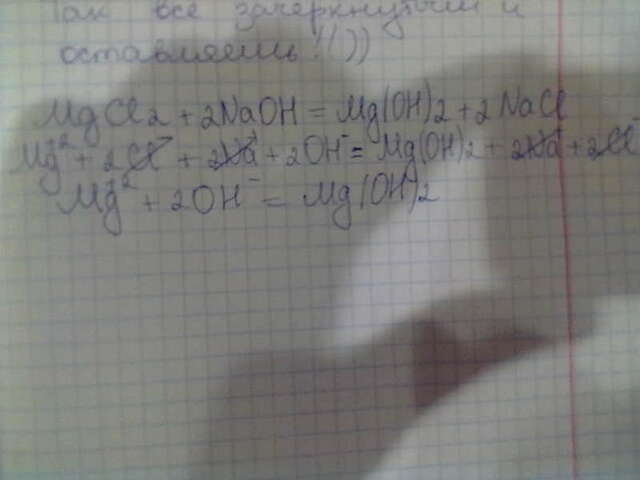 Так все зачеркнутыми и
оставляешь!!))
MgCl2 + 2NaOH = Mg(OH)2 + 2NaCl
Mg+2 + 2Cl- + 2Na+ + 2OH- = Mg(OH)2 + 2Na+ + 2Cl-
Mg+2 + 2OH- = Mg(OH)2